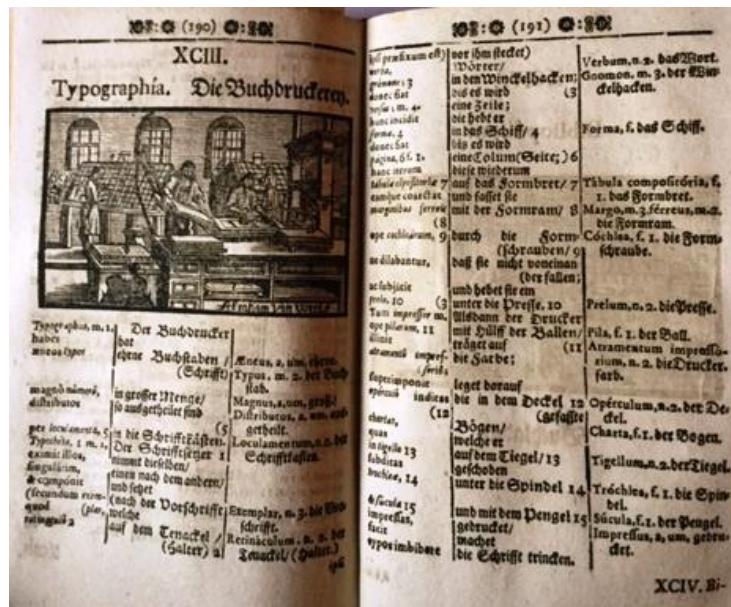 (190)
XCIII.
Typographía. Die Buchdruckerey.
Typographus, m. 2.
habet
æneos typos
magnô númerô,
distributos
per loculamenta, 5
Typothéta, 1 m. 1.
eximit illos,
singulátim,
& compónit
(secundum exem-
quod (plar,
retináculô 2
Der Buchdrucker
hat
ehrne Buchstaben /
(Schrifft)
in grosser Menge/
so außgetheilt sind
(5
in die Schrifftkästen.
Der Schrifftsetzer 1
nimmt dieselben/
einen nach dem andern/
und setzet
(nach der Vorschrifft)
welche
auf dem Tenackel /
(Halter) 2
Æneus, a, um, ehrn.
Typus, m. 2. der Buch
stab.
Magnus, a, um, groß.
Distributus, a, um, auß-
getheilt.
Loculamentum, n. 2. der
Schrifftkasten.
Exemplar, n. 3. die Vor-
schrifft.
Retináculum, n. 2. der
Tenackel/ (Halter.)
(191)
verba,
gnómone; 3
donec fiat
versus; m. 4.
hunc incidit
formæ, 4
donec fiat
página, 6 f. 1.
hanc iterum
tábulæ compositóriæ 7
eamque coarctat
marginibus ferreis
(8
ope cochleárum, 9
ne dilabantur,
ac subjicit
prelo, 10 (3
Tum impressor m.
ope pilarum, 11
illinit
atraménto impress.
superimponit
opérculo inditas
(12
chartas,
quas
in tigello 13
subditas
trochleæ, 14
& súcula 15
impressas,
facit
typos imbibere
vor ihm stecket)
Wörter/
in den Winckelhacken;
bis es wird (3
eine Zeile;
die hebt er
in das Schiff/ 4
biß es wird
eine Colum(Seite;) 6
diese wiederum
auf das Formbret/ 7
und fasset sie
mit der Formram/ 8
durch die Form-
(schrauben/ 9
daß sie nicht voneinan
(der fallen;
und hebet sie ein
unter die Presse. 10
Alsdann der Drucker
mit Hülff der Ballen/
träget auf (11
die Farbe;
leget darauf
die in dem Deckel 12
(gefaßte
Bögen/
welche er
auf dem Tiegel/ 13
geschoben
unter die Spindel 14
und mit dem Pengel 15
gedrucket/
machet
die Schrifft trincken.
Verbum, n. 2. das Wort.
Gnomon, m. 3. der Win-
ckelhacken.
Forma, f. das Schiff.
Tábula compositória, f.
1. das Formbret.
Margo, m. 3. férreus, m. 2.
die Formram.
Cóchlea, f. 1. die Form-
schraube.
Prelum, n. 2. die Presse.
Pila, f. 1. der Ball.
Atramentum impressó-
rium, n. 2. die Drucker-
farb.
Opérculum, n. 2. der De-
ckel.
Charta, f. 1. der Bogen.
Tigellum, n. 2. der Tiegel.
Tróchlea, f. 1. die Spin-
del.
Súcula, f. 1. der Pengel.
Impressus, a, um, gedru-
cket.
XCIV. Bi-